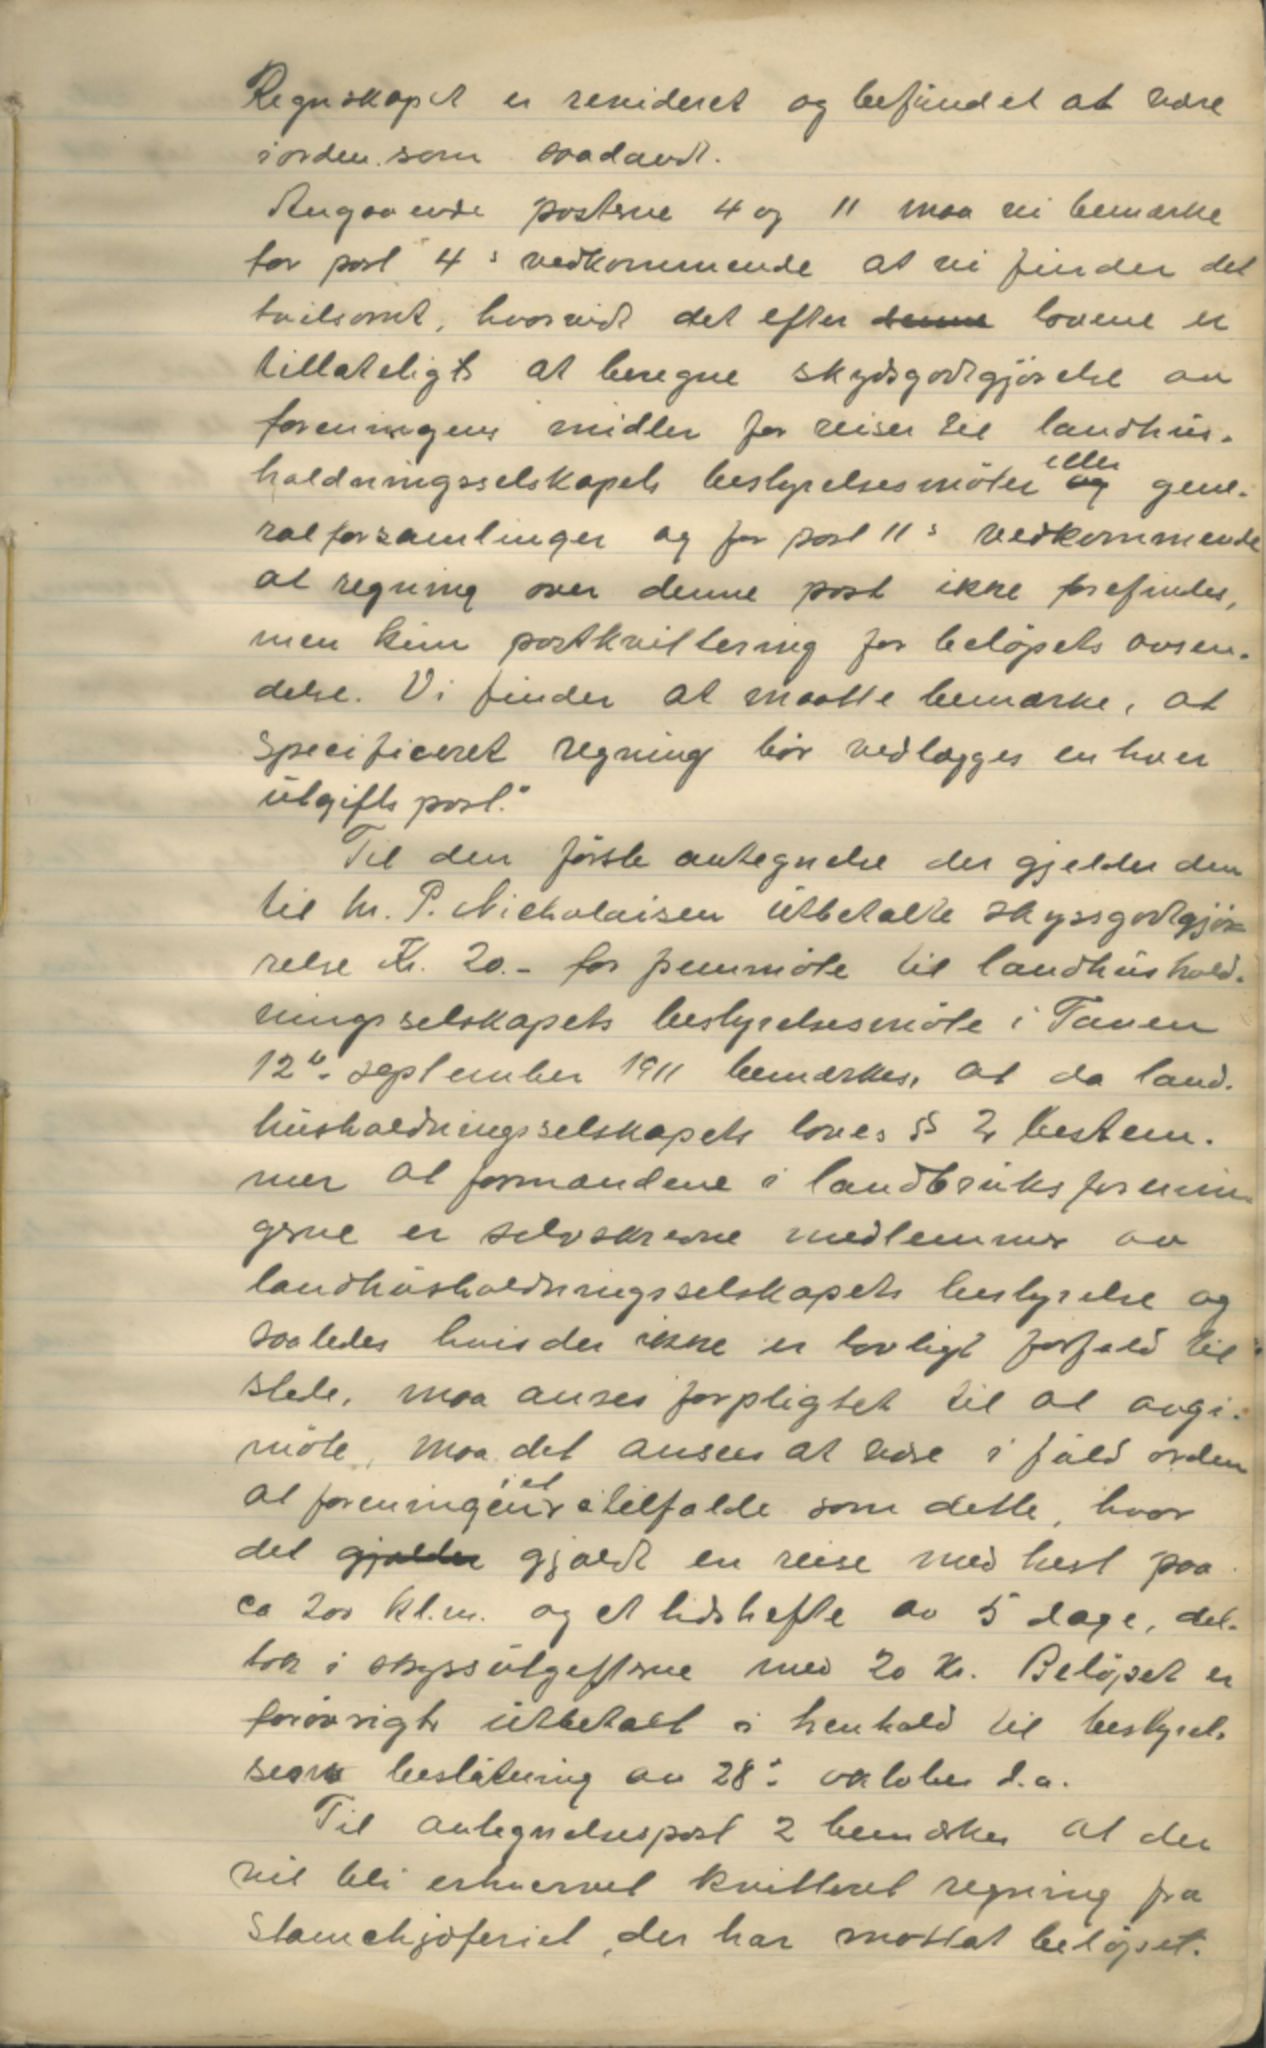 Regnskapet er revideret og befundet at være
iorden som saadandt.
Angaaende posterne 4 og 11 maa vi bemærke
for post 4s vedkommende at vi finder det
tvilsomt, hvorvidt det efter denne lovene er
tillateligt at beregne skydsgodtgjörelse av
foreningens midler for reiser til landhus-
holdningsselskapets bestyrelsesmöter og eller gene-
ralforsamlinger og for post 11s vedkommende
at regning over denne post ikke forefindes,
men kun postkvittering for belöpets avsen-
delse. Vi finder at maatte bemærke, at
specificeret regning bör vedlægges enhver
utgiftspost."
Til den förste antegnelse der gjelder den
til hr. P. Nicholaisen utbetalte skyssgodtgjö-
relse Kr. 20.- for fremmöte til landhushold-
ningsselskapets bestyrelsesmöte i Tanen
12te september 1911 bemærkes, at da land-
husholdningsselskapets loves § 2 bestem-
mer at formandene i landbruksforenin-
gerne er selvskrevne medlemmer av
landhusholdningsselskapets bestyrelse og
saaledes hvis der ikke er lovligt forfald til
stede, maa anses forpligtet til at avgi
möte, maa det ansees at være i fuld orden
at foreningen i et tilfælde som dette, hvor
det gjælder gjaldt en reise med hest paa
ca 200 kl.m. og et tidshefte av 5 dage, del-
tok i skyssutgifterne med 20 Kr. Belöpet er
forövrigt utbetalt i henhold til bestyrel-
sens beslutning av 28de oktober d.a.
Til antegnelsespost 2 bemærkes at der
vil bli erhvervet kvitteret regning fra
Stamchjæseriet, der har mottat belöpet.